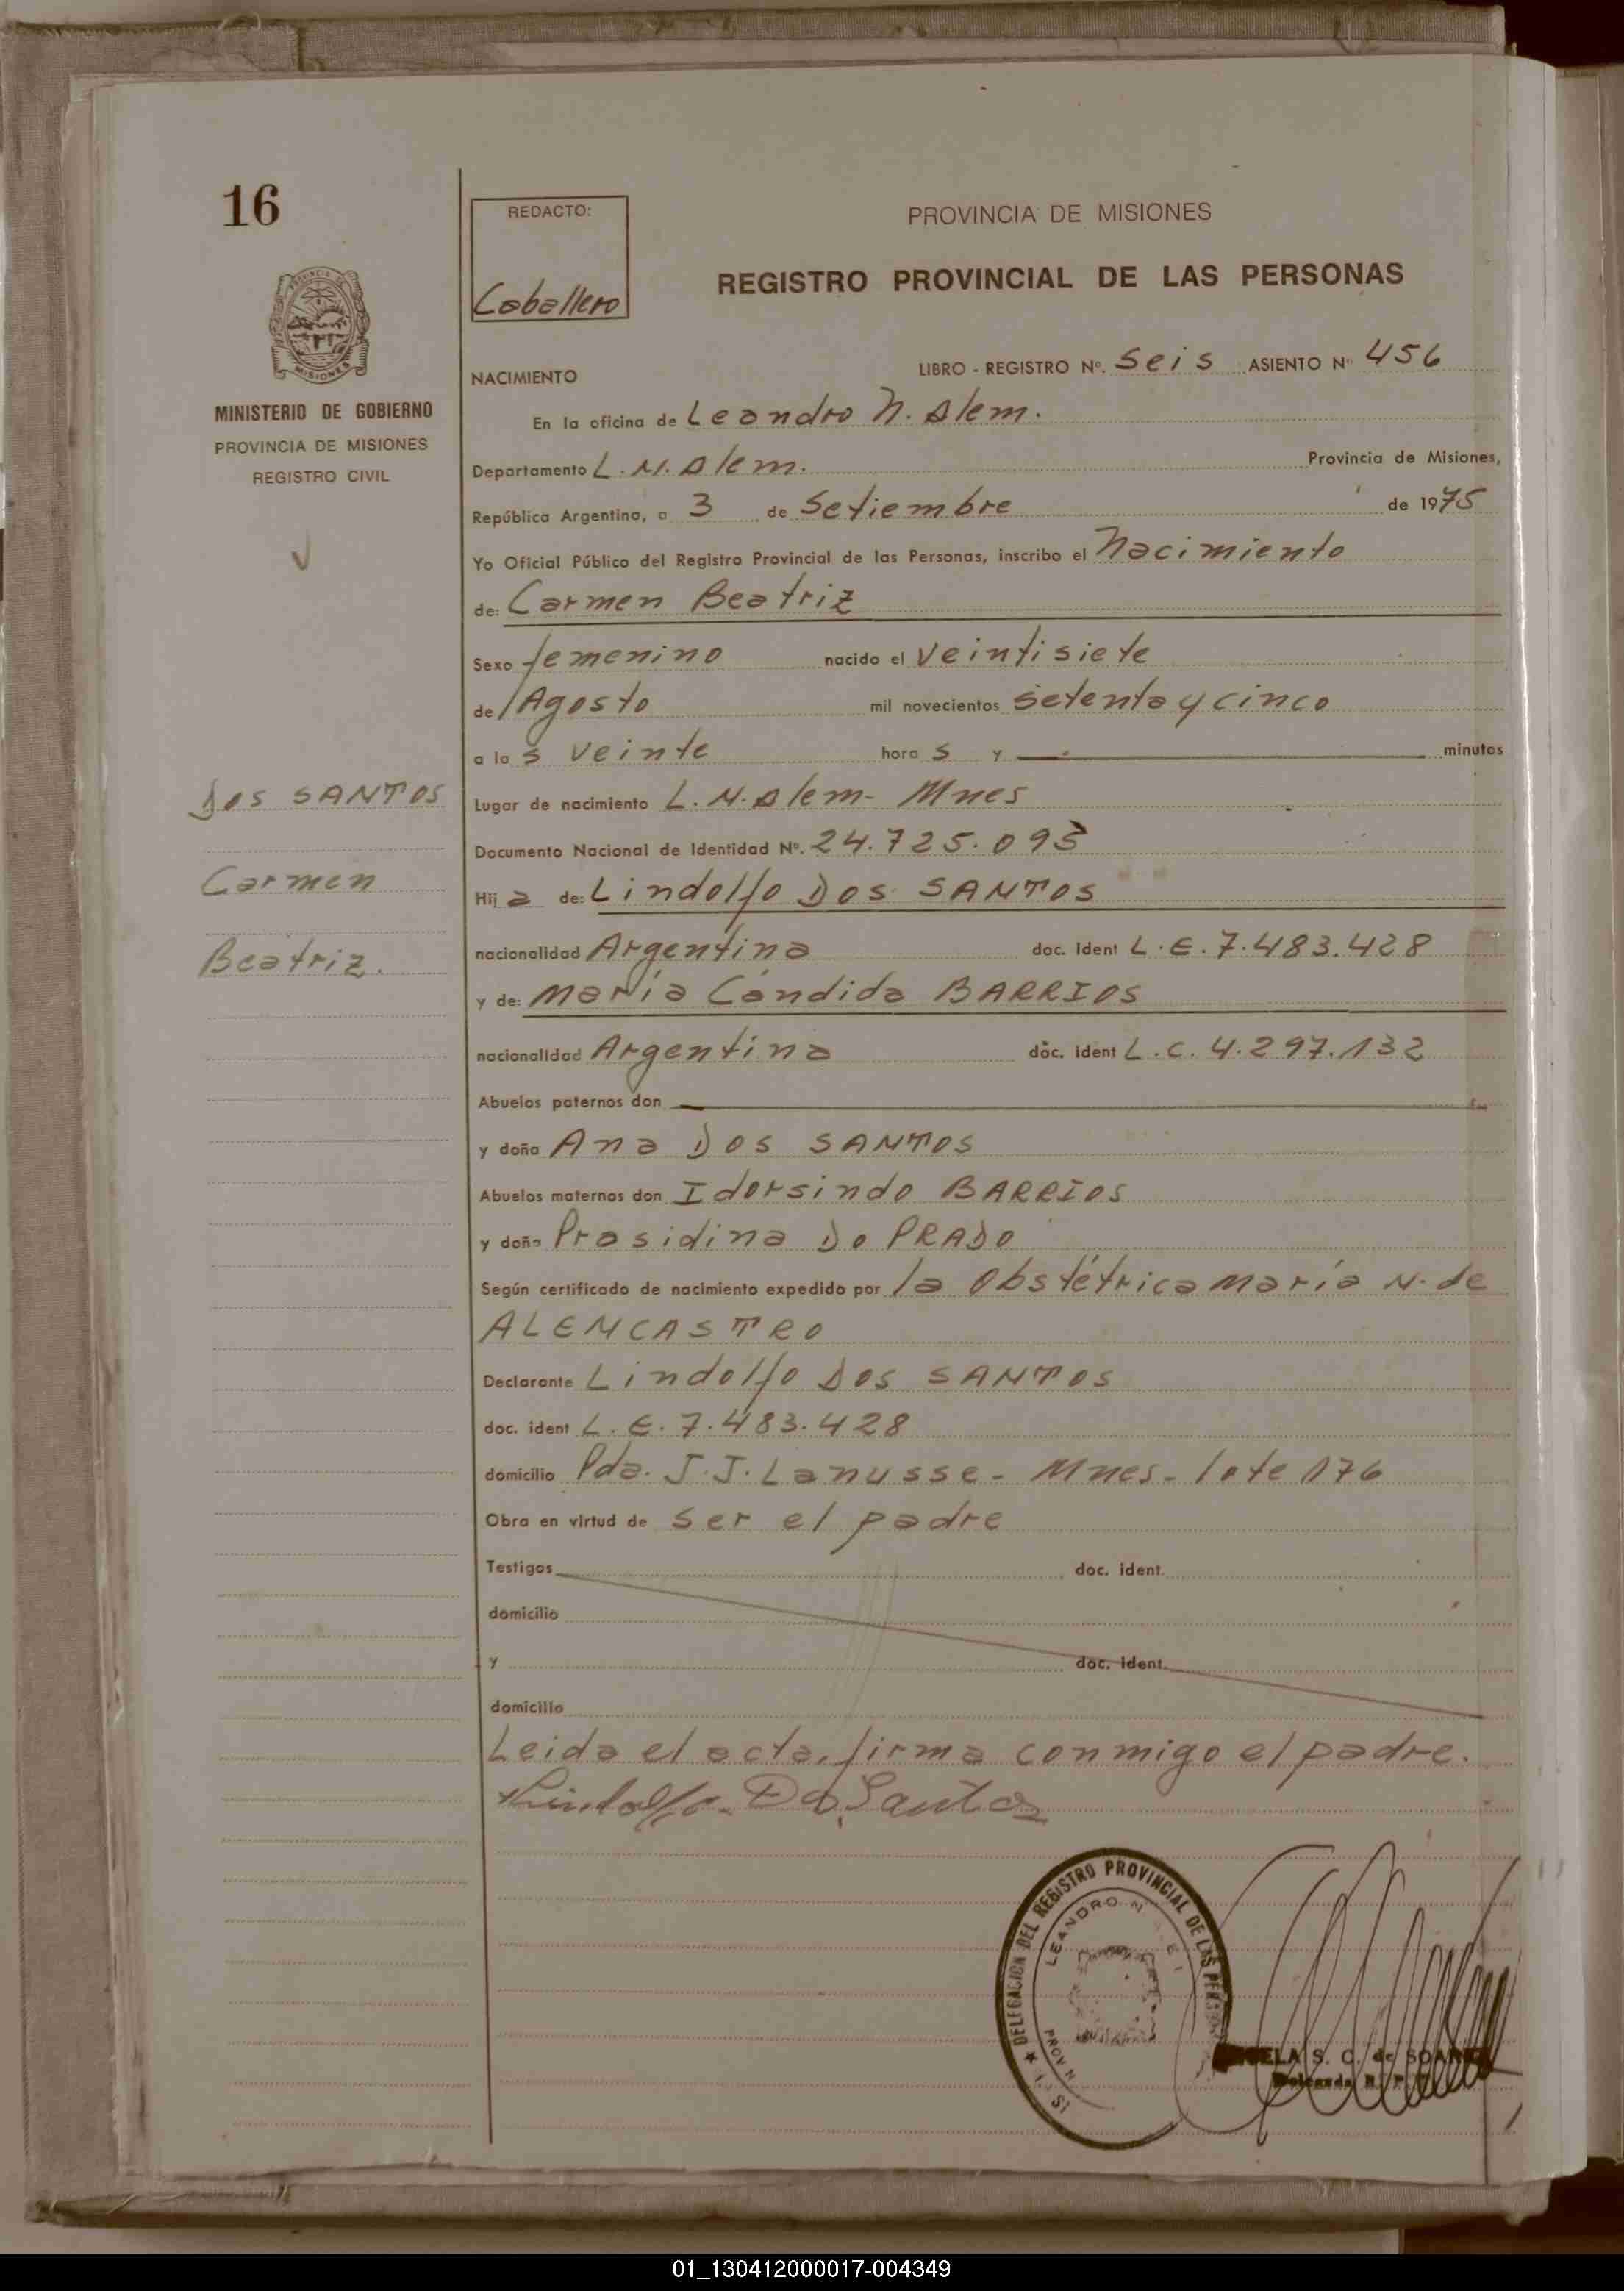 16
REDACTO:
Caballero
PROVINCIA DE MISIONES
REGISTRO PROVINCIAL DE LAS PERSONAS
MISIONES
MINISTERIO DE GOBIERNO
PROVINCIA DE MISIONES
REGISTRO CIVIL
NACIMIENTO
LIBRO - REGISTRO Nº. Seis ASIENTO Nº 456
En la oficina de Leandro N. Alem.
Departamento L. N. Alem. Provincia de Misiones,
República Argentina, a 3 de Setiembre de 1975
Yo Oficial Público del Registro Provincial de las Personas, inscribo el Nacimiento
de: Carmen Beatriz
Sexo femenino nacido el veintisiete
de Agosto mil novecientos setenta y cinco
a las veinte horas y — minutos
Lugar de nacimiento L. N. Alem - Mnes
DOS SANTOS
Carmen
Beatriz.
Documento Nacional de Identidad Nº. 24.725.093
Hija de: Lindolfo DOS SANTOS
nacionalidad Argentina doc. Ident L. E. 7.483.428
y de: María Cándida BARRIOS
nacionalidad Argentina doc. ident L. C. 4.297.132
Abuelos paternos don —
y doña Ana DOS SANTOS
Abuelos maternos don Idorsindo BARRIOS
y doña Prosidina Do PRADO
Según certificado de nacimiento expedido por la Obstétrica María N. de
ALEMCASTRO
Declarante Lindolfo DOS SANTOS
doc. ident L. E. 7.483.428
domicilio Pda. J. J. Lanusse - Mnes - lote 176
Obra en virtud de ser el padre
Testigos doc. ident.
domicilio
y doc. ident.
domicilio
Leida el acta, firma conmigo el padre.
Lindolfo Dos Santos
DELEGACION DEL REGISTRO PROVINCIAL DE LAS
LEANDRO N
PROV
S. C. de SOAREZ
Delegada
01_130412000017-004349